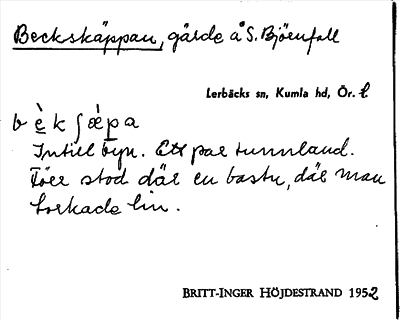 Beckskäppan, gärde å S. Björnfall
Lerbäcks sn, Kumla hd, Ör. l
bèkʃæ̀pa
Intill byn. Ett par tunnland.
Förr stod där en bastu, där man
torkade lin.
BRITT-INGER HÖJDESTRAND 1952